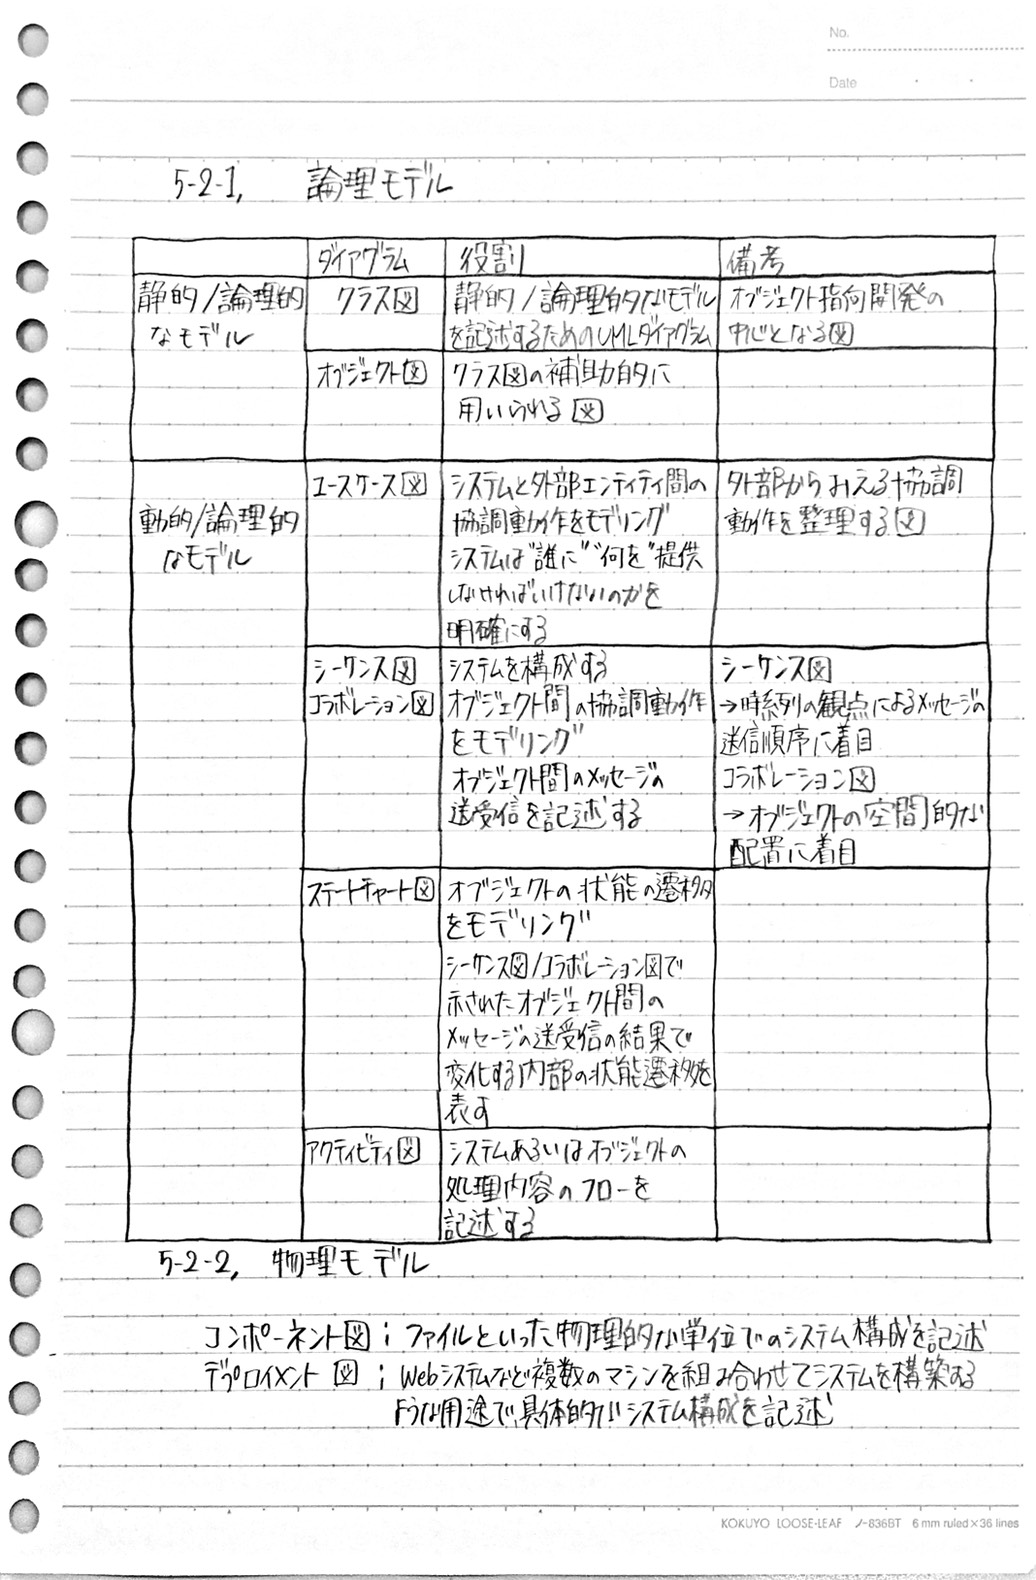 No.
Date
5-2-1. 論理モデル
ダイアグラム 役割 備考
静的/論理的
なモデル
クラス図
静的/論理的なモデル
を記述するためのUMLダイアグラム
オブジェクト指向開発の
中心となる図
オブジェクト図
クラス図の補助的に
用いられる図
動的/論理的
なモデル
ユースケース図
システムと外部エンティティ間の
協調動作をモデリング
システムは"誰に" "何を"提供
しなければいけないのかを
明確にする
外部からみえる協調
動作を整理する図
シーケンス図
コラボレーション図
システムを構成する
オブジェクト間の協調動作
をモデリング
オブジェクト間のメッセージの
送受信を記述する
シーケンス図
→時系列の観点によるメッセージの
送信順序に着目
コラボレーション図
→オブジェクトの「空間」的な
配置に着目
ステートチャート図
オブジェクトの状態の遷移
をモデリング
シーケンス図/コラボレーション図で
示されたオブジェクト間の
メッセージの送受信の結果で
変化する内部の状態遷移を
表す
アクティビティ図
システムあるいはオブジェクトの
処理内容のフローを
記述する
5-2-2. 物理モデル
コンポーネント図；ファイルといった物理的な単位でのシステム構成を記述
デプロイメント図；Webシステムなど複数のマシンを組み合わせてシステムを構築する
ような用途で、具体的なシステム構成を記述
KOKUYO LOOSE-LEAF ノ-836BT 6mm ruled×36 lines